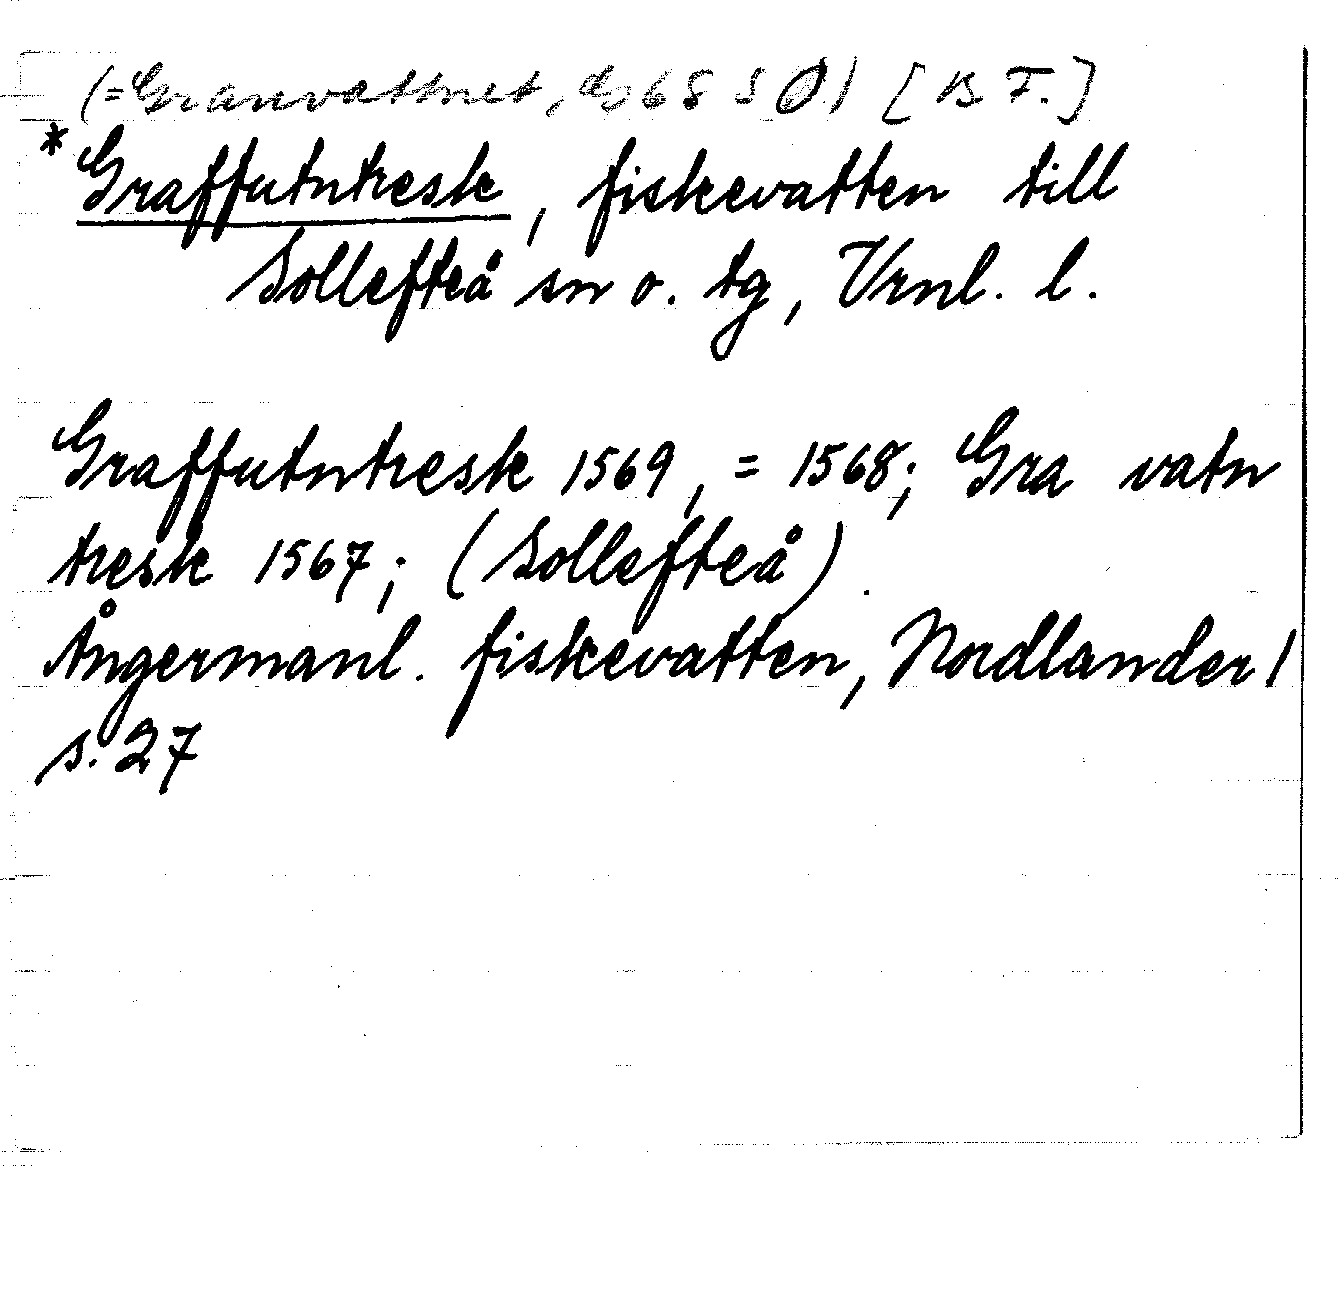 (=Granvattnet, 68 S Ø) [B F.]
*Graffutntresk, fiskevatten till
Sollefteå sn o. tg, Vrnl. l.
Graffutntresk 1569, = 1568; Gra vatn
tresk 1567; (Sollefteå).
Ångermanl. fiskevatten, Nordlander 1
s. 27